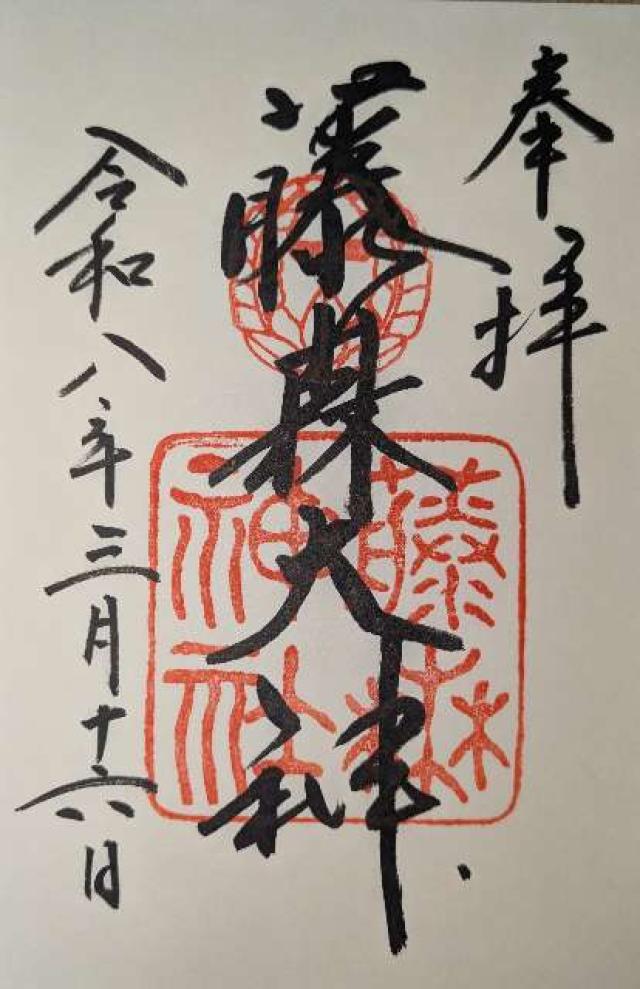 奉拝
藤森大神
令和八年三月十六日
藤森
神社